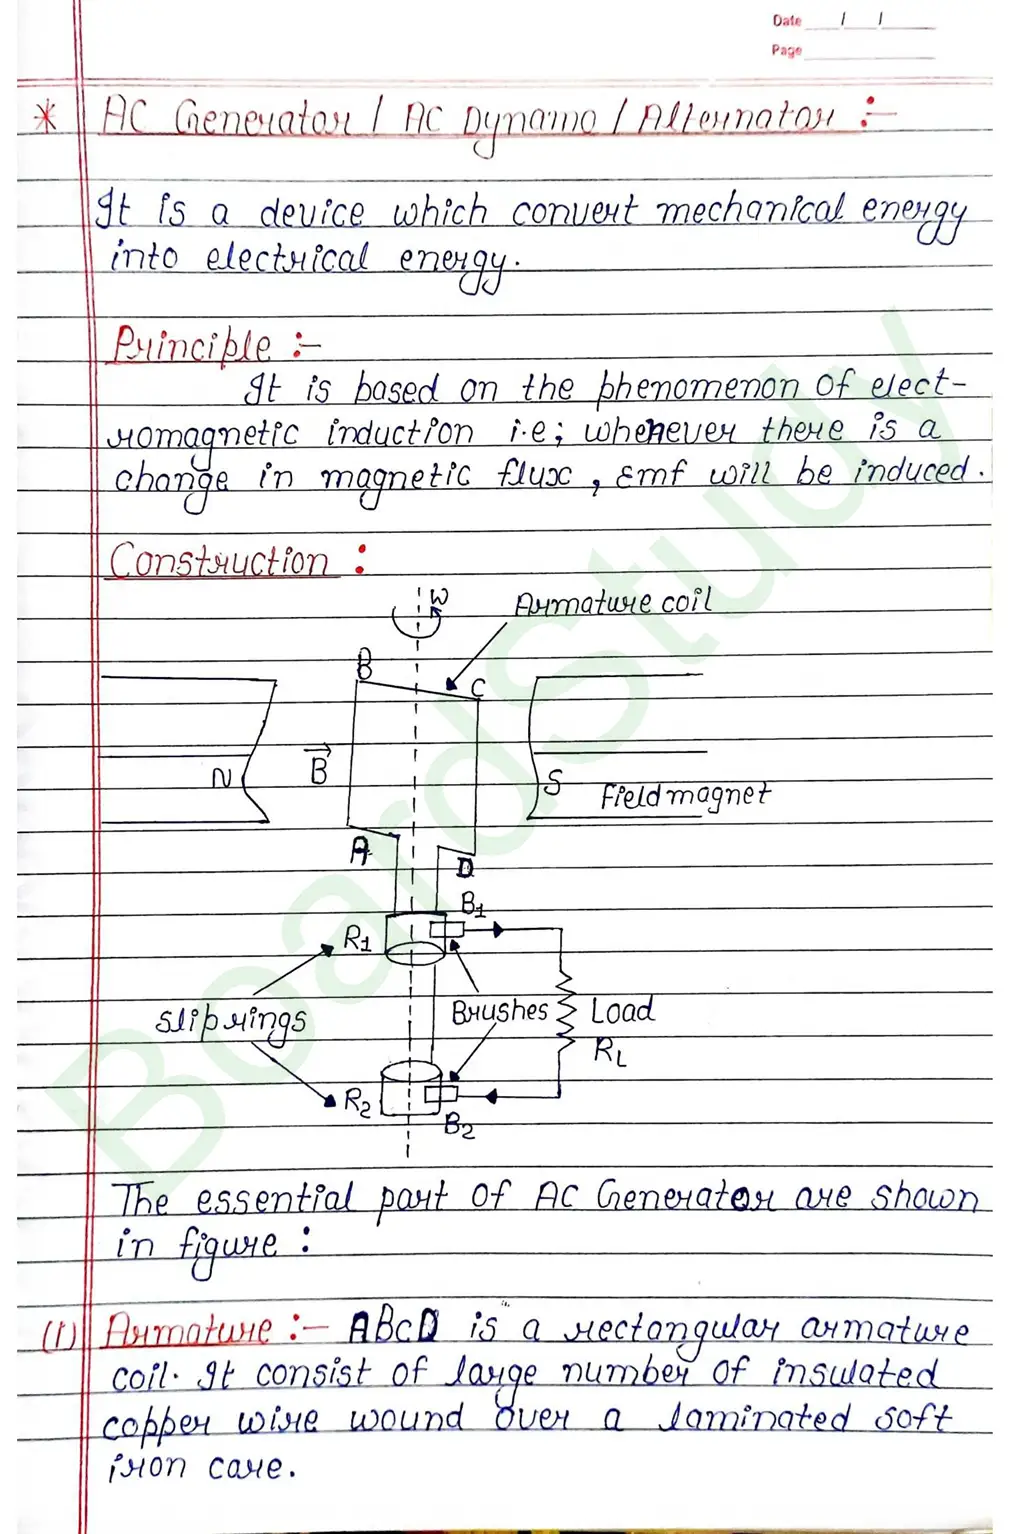 Date / /
Page
* AC Generator / AC Dynamo / Alternator :-
It is a device which convert mechanical energy
into electrical energy.
Principle :-
It is based on the phenomenon of elect-
romagnetic induction i.e; whenever there is a
change in magnetic flux, Emf will be induced.
Construction :
W
Armature coil
B
C
N
B
S
Field magnet
A
D
B1
R1
Slip rings
Brushes
Load
RL
R2
B2
The essential part of AC Generator are shown
in figure :
(1) Armature :- ABCD is a rectangular armature
coil. It consist of large number of insulated
copper wire wound over a laminated soft
iron care.
BoardStudy